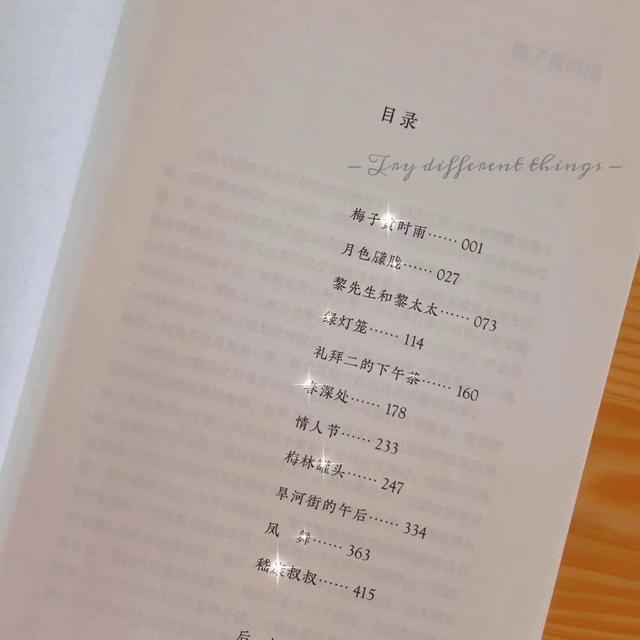 目录
– Try different things –
梅子黄时雨…… 001
月色朦胧…… 027
黎先生和黎太太…… 073
绿灯笼…… 114
礼拜二的下午茶…… 160
春深处…… 178
情人节…… 233
梅林罐头…… 247
旱河街的午后…… 334
凤 舞…… 363
嵇康叔叔…… 415
后